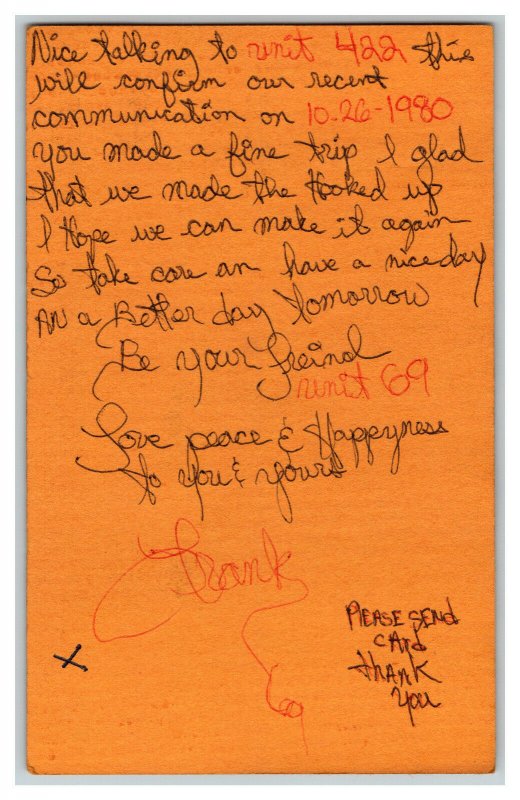 Nice talking to unit 422 this
will confirm our recent
communication on 10-26-1980
you made a fine trip I glad
that we made the Hooked up
I Hope we can make it again
So take care an have a nice day
AN a Better day tomorrow
Be your Freind
unit 69
Love peace & Happyness
to you & yours
Frank
69
PLEASE SEND
CARD
THANK
YOU